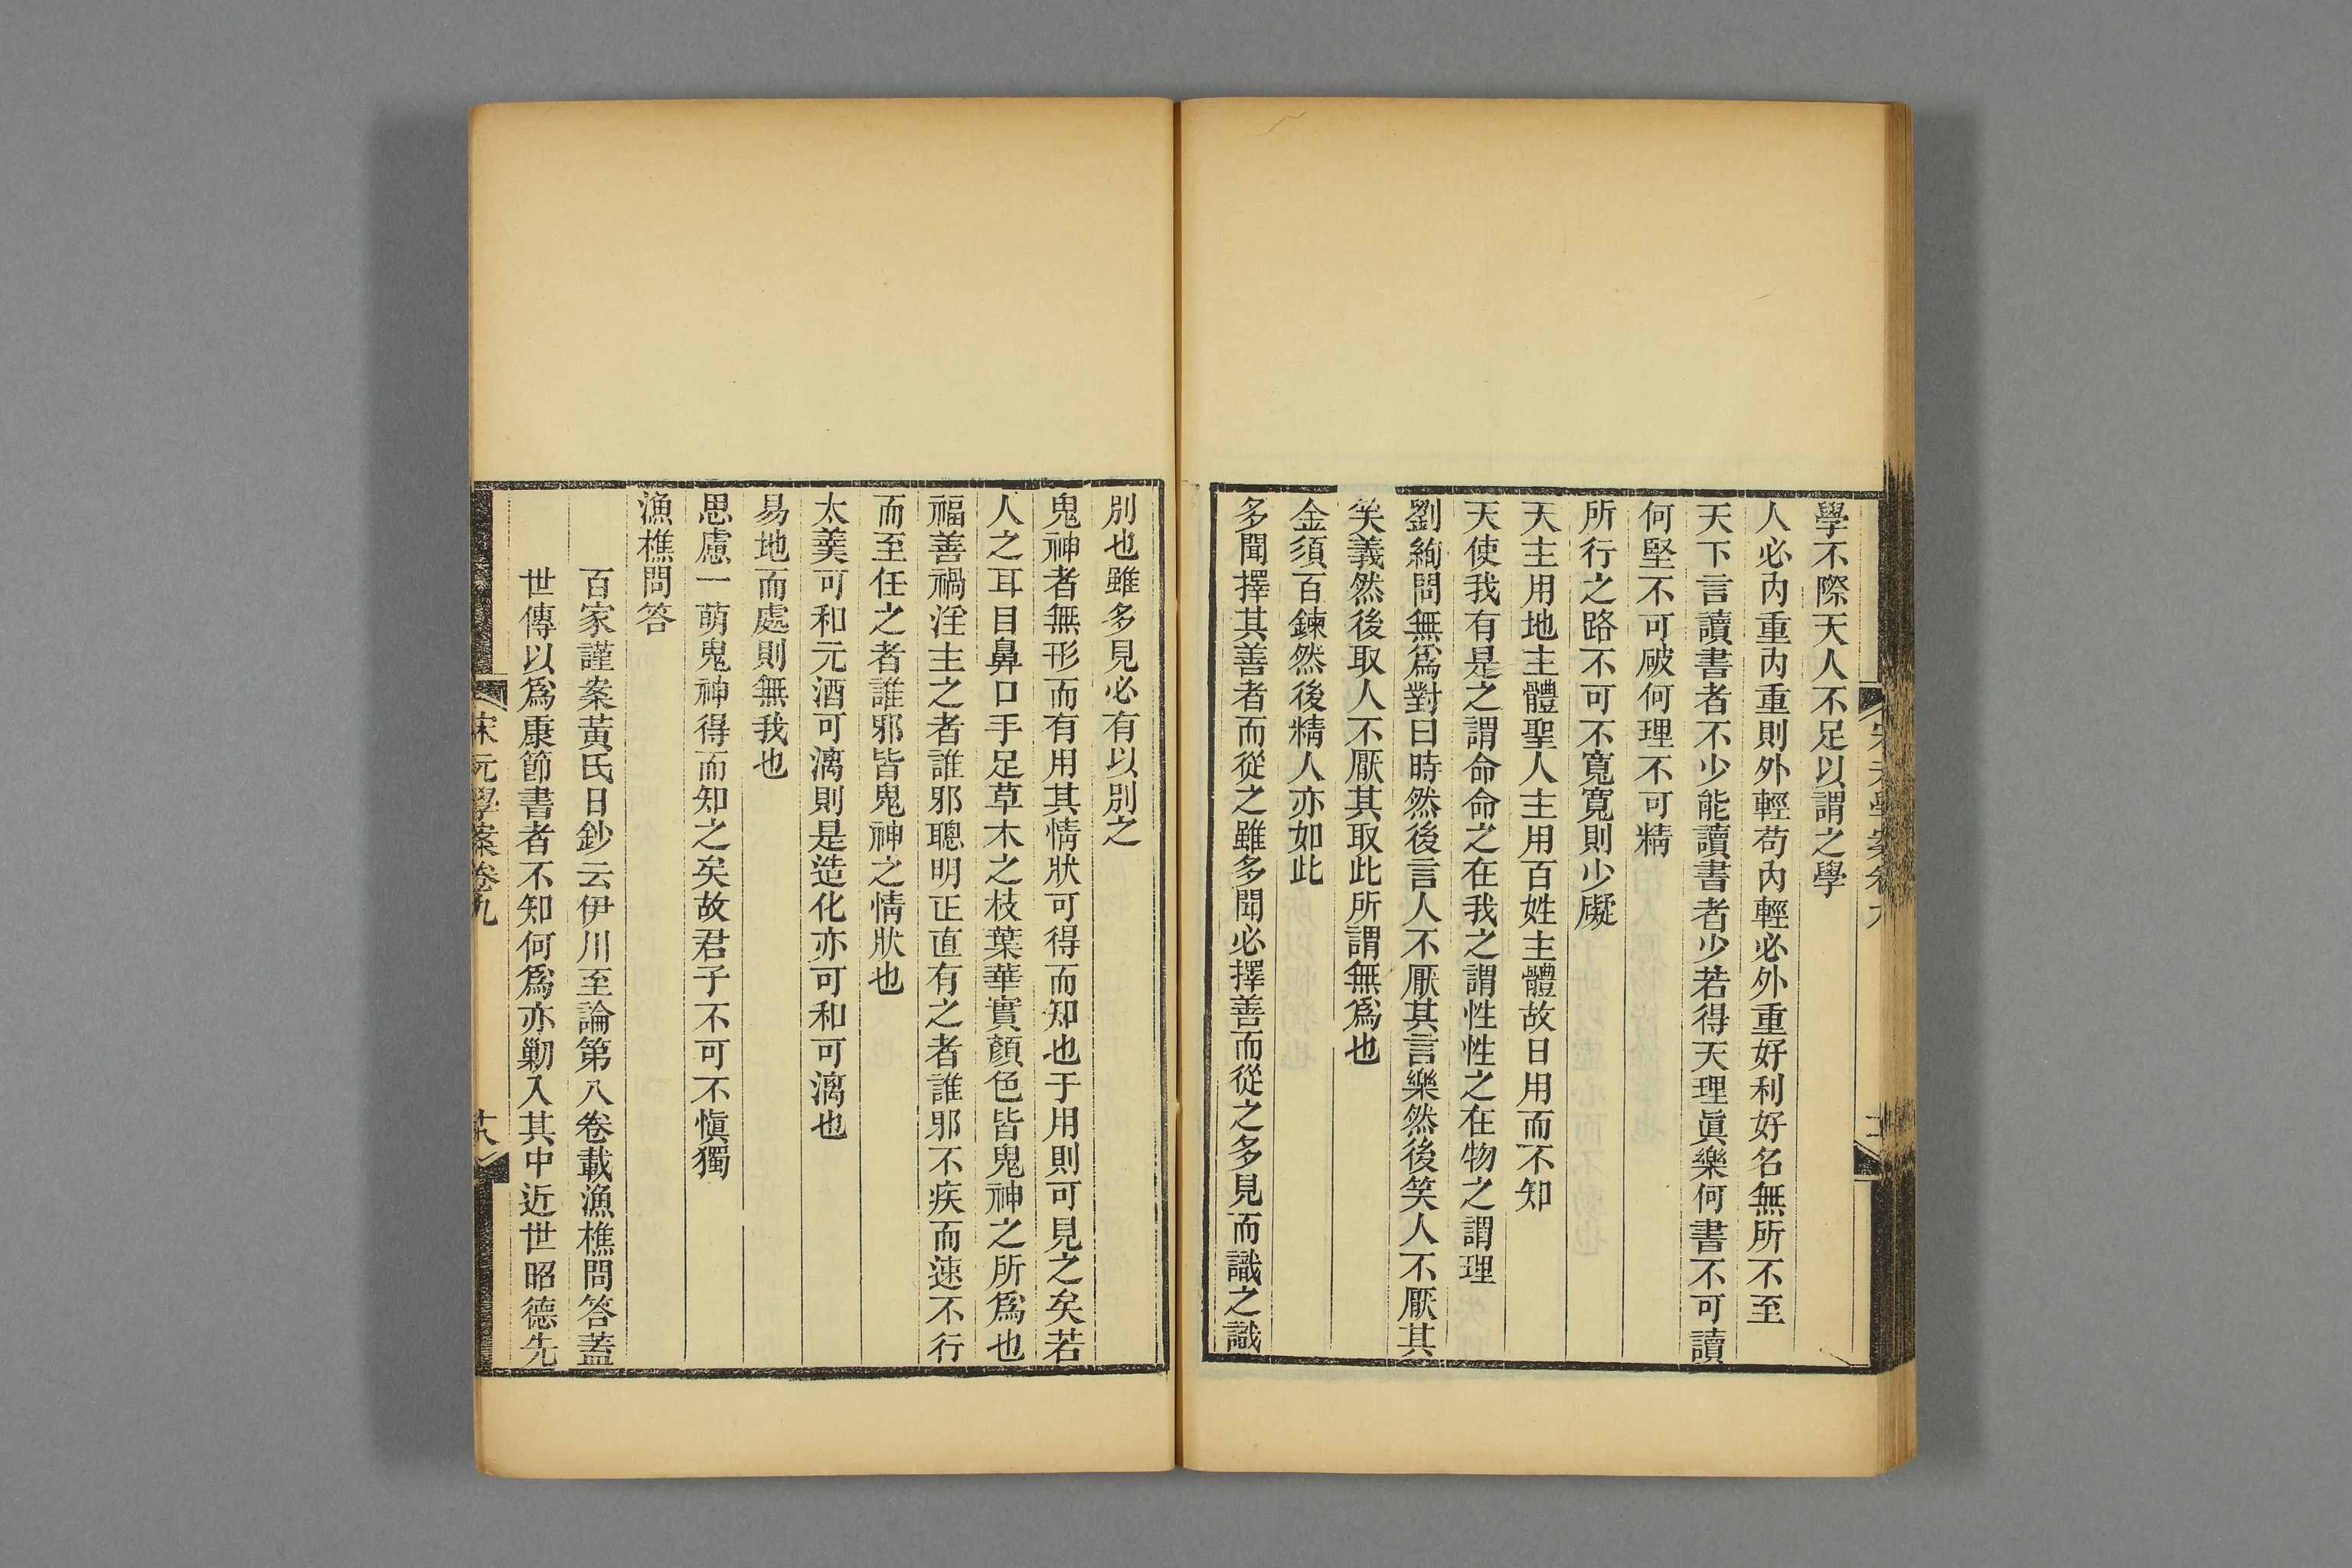 學不際天人不足以謂之學
人必內重內重則外輕苟內輕必外重好利好名無所不至
天下言讀書者不少能讀書者少若得天理眞樂何書不可讀
何堅不可破何理不可精
所行之路不可不寬寬則少礙
天主用地主體聖人主用百姓主體故日用而不知
天使我有是之謂命命之在我之謂性性之在物之謂理
劉絢問無爲對曰時然後言人不厭其言樂然後笑人不厭其
笑義然後取人不厭其取此所謂無爲也
金須百鍊然後精人亦如此
多聞擇其善者而從之雖多聞必擇善而從之多見而識之識
別也雖多見必有以別之
鬼神者無形而有用其情狀可得而知也于用則可見之矣若
人之耳目鼻口手足草木之枝葉華實顏色皆鬼神之所爲也
福善禍淫主之者誰邪聰明正直有之者誰邪不疾而速不行
而至任之者誰邪皆鬼神之情狀也
太羹可和元酒可漓則是造化亦可和可漓也
易地而處則無我也
思慮一萌鬼神得而知之矣故君子不可不愼獨
漁樵問答
百家謹案黃氏日鈔云伊川至論第八卷載漁樵問答蓋
世傳以爲康節書者不知何爲亦勦入其中近世昭德先
宋元學案卷九